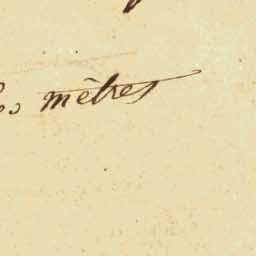 mètres